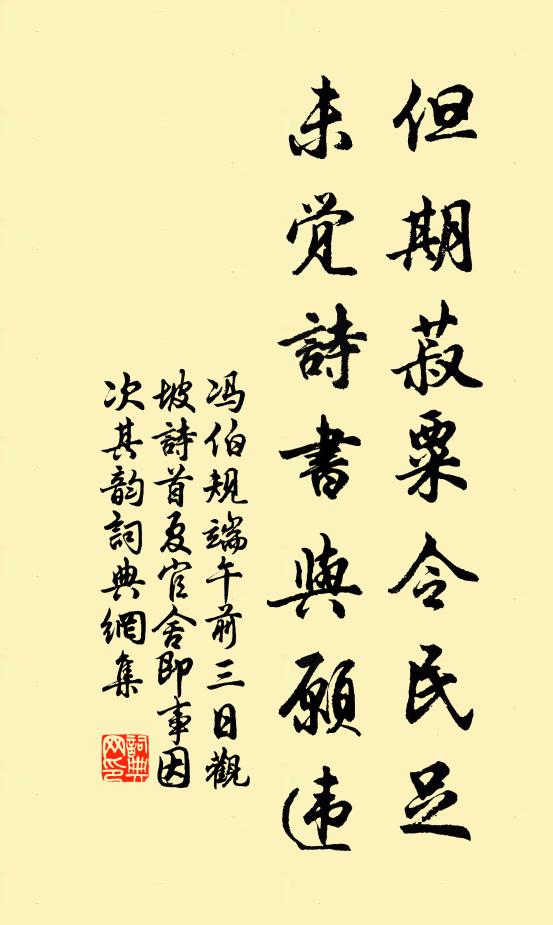 但期菽粟令民足
未觉詩書與願违
冯伯规端午前三日觀
坡詩首夏官舍即事因
次其韵詞典網集
詞典
网印